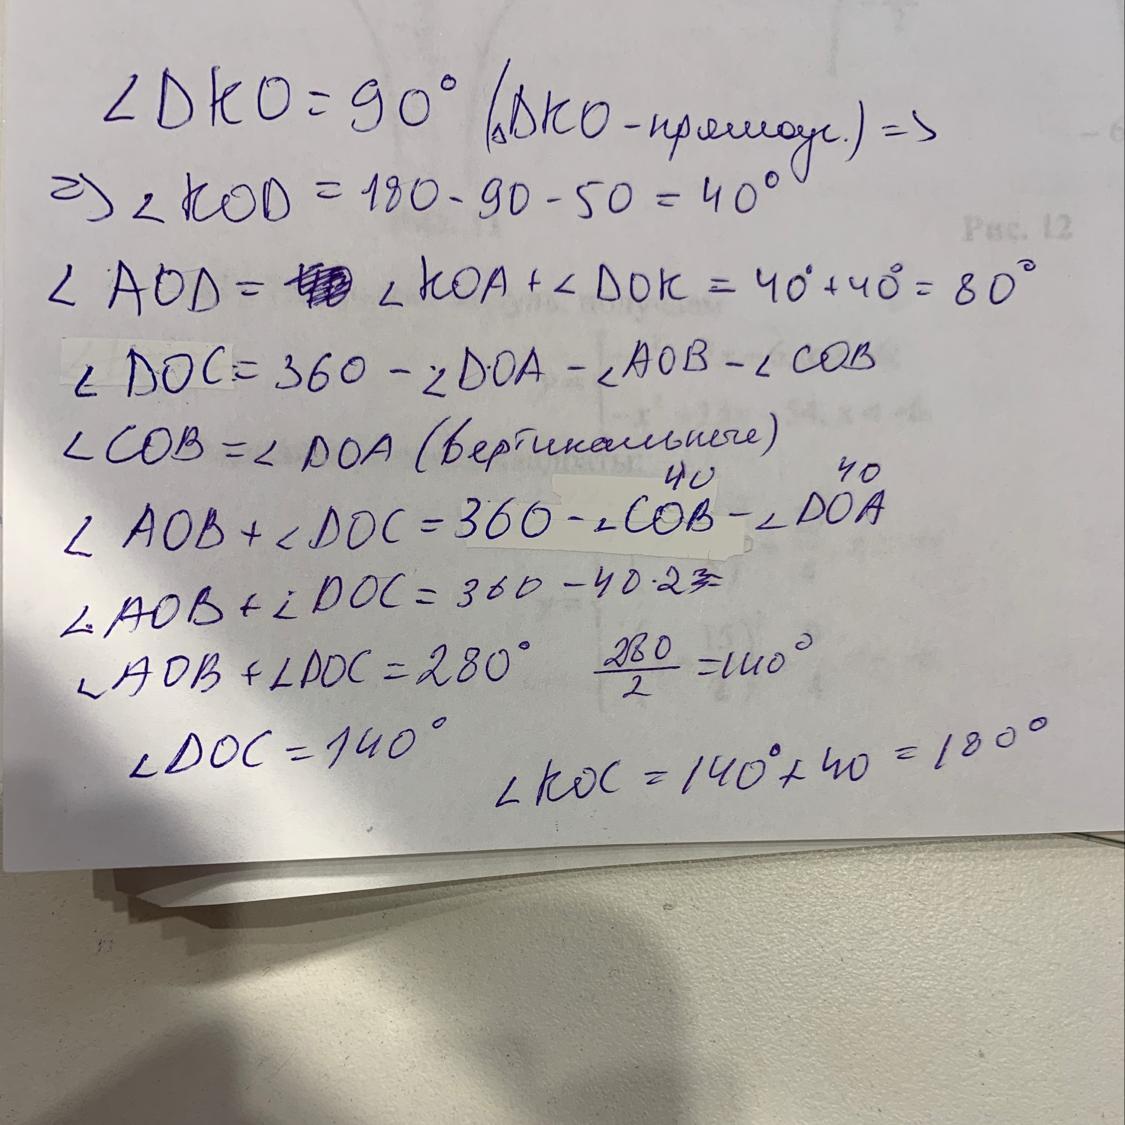 ∠DKO = 90° (△DKO - прямоуг.) =>
=> ∠KOD = 180 - 90 - 50 = 40°
Рис. 12
∠AOD = ∠KOA + ∠DOK = 40° + 40° = 80°
∠DOC = 360 - ∠DOA - ∠AOB - ∠COB
∠COB = ∠DOA (вертикальные)
40 40
∠AOB + ∠DOC = 360 - ∠COB - ∠DOA
∠AOB + ∠DOC = 360 - 40·2
∠AOB + ∠DOC = 280° 280/2 = 140°
∠DOC = 140°
∠KOC = 140° + 40 = 180°